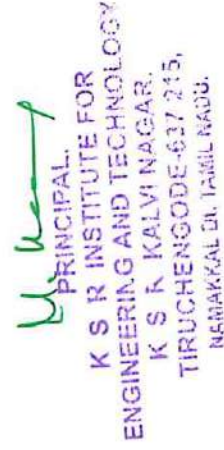 PRINCIPAL,
K S R INSTITUTE FOR
ENGINEERING AND TECHNOLOGY
K S R KALVI NAGAR,
TIRUCHENGODE-637 215,
NAMAKKAL DI, TAMIL NADU.